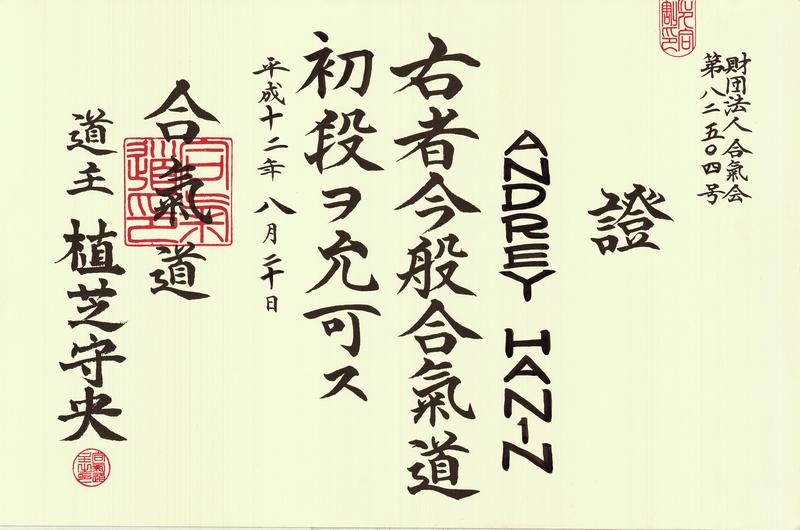 財団法人合氣会
第八二五〇四号
證
ANDREY HANIN
右者今般合氣道
初段ヲ允可ス
平成十二年八月二十日
合氣道
道主 植芝守央